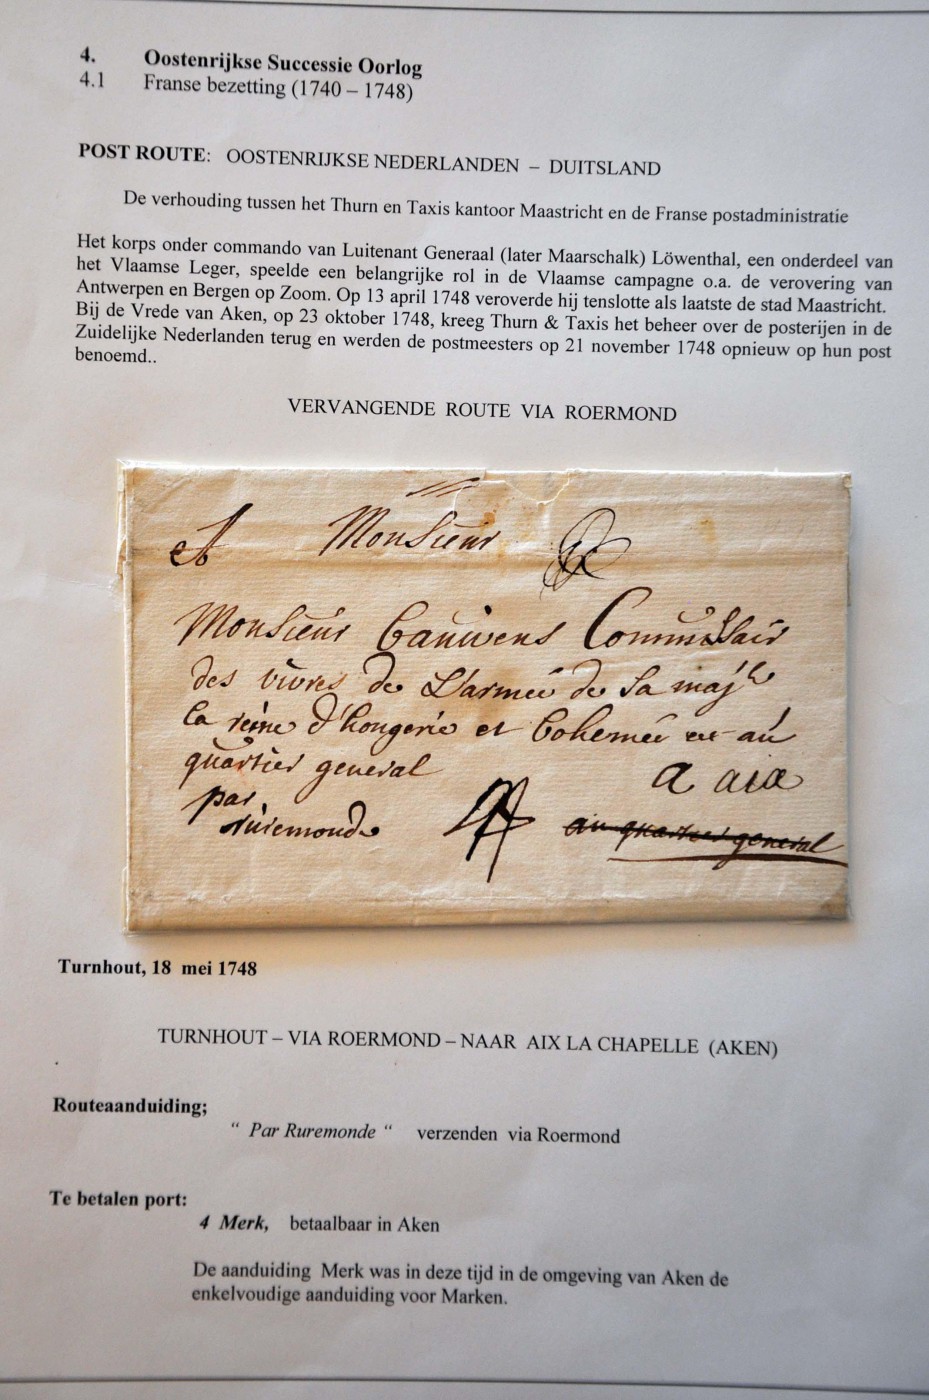 4. Oostenrijkse Successie Oorlog
4.1 Franse bezetting (1740 – 1748)
POST ROUTE: OOSTENRIJKSE NEDERLANDEN – DUITSLAND
De verhouding tussen het Thurn en Taxis kantoor Maastricht en de Franse postadministratie
Het korps onder commando van Luitenant Generaal (later Maarschalk) Löwenthal, een onderdeel van
het Vlaamse Leger, speelde een belangrijke rol in de Vlaamse campagne o.a. de verovering van
Antwerpen en Bergen op Zoom. Op 13 april 1748 veroverde hij tenslotte als laatste de stad Maastricht.
Bij de Vrede van Aken, op 23 oktober 1748, kreeg Thurn & Taxis het beheer over de posterijen in de
Zuidelijke Nederlanden terug en werden de postmeesters op 21 november 1748 opnieuw op hun post
benoemd..
VERVANGENDE ROUTE VIA ROERMOND
A Monsieur
Monsieur Cauwens Commissair
des vivres de L'armée de Sa maj^te
la reine d'hongerie et bohemée et au
quartier general a aix
par
ruremonde au quartier general
Turnhout, 18 mei 1748
TURNHOUT – VIA ROERMOND – NAAR AIX LA CHAPELLE (AKEN)
Routeaanduiding;
“ Par Ruremonde “ verzenden via Roermond
Te betalen port:
4 Merk, betaalbaar in Aken
De aanduiding Merk was in deze tijd in de omgeving van Aken de
enkelvoudige aanduiding voor Marken.